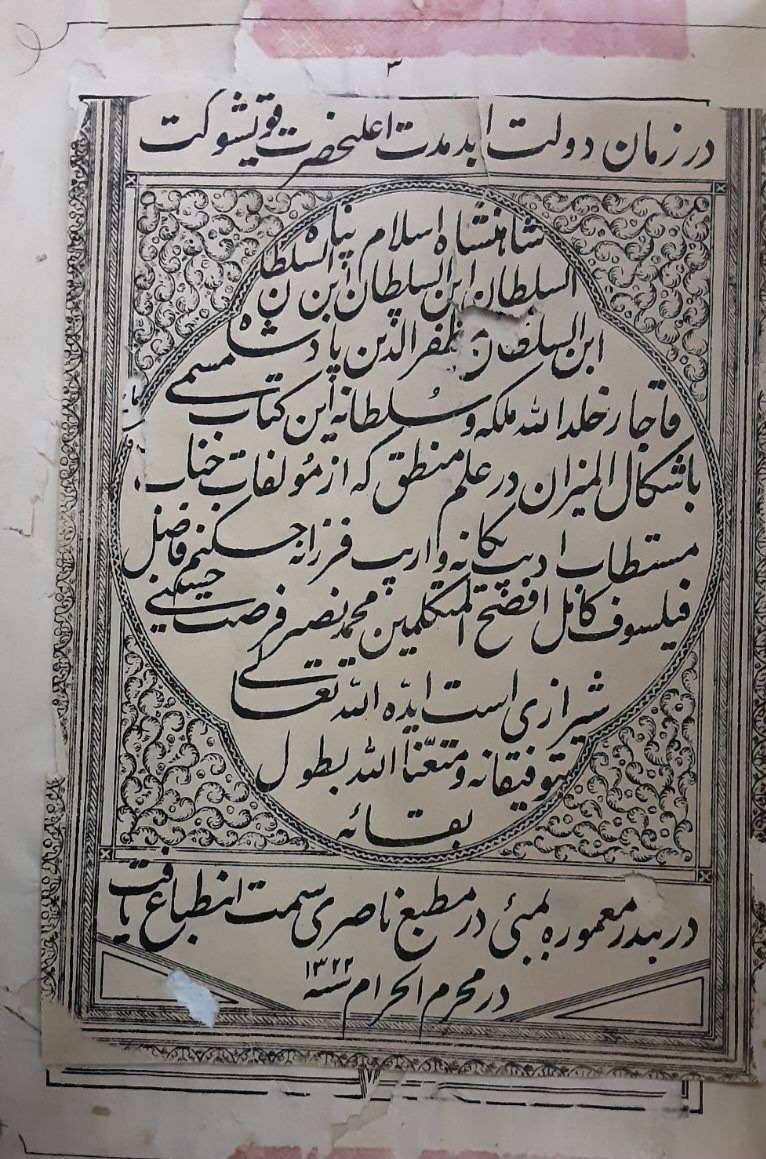 ۳
در زمان دولت ابد مدت اعلیحضرت قویشوکت
شاهنشاه اسلام پناه
السلطان ابن السلطان ابن السلطان
ابن السلطان مظفر الدین پادشاه
قاجار خلد الله ملکه و سلطانه این کتاب مسمی
باشکال المیزان در علم منطق که از مؤلفات جناب
مستطاب ادیب یگانه و اریب فرزانه حکیم فاضل
فیلسوف کامل افصح المتکلمین محمد نصیر فرصت حسینی
شیرازی است ایده الله تعالی
بتوفیقاته و متعنا الله بطول
بقائه
در بندر معموره بمبئی در مطبع ناصری سمت انطباع یافت
در محرم الحرام سنه ۱۳۲۲